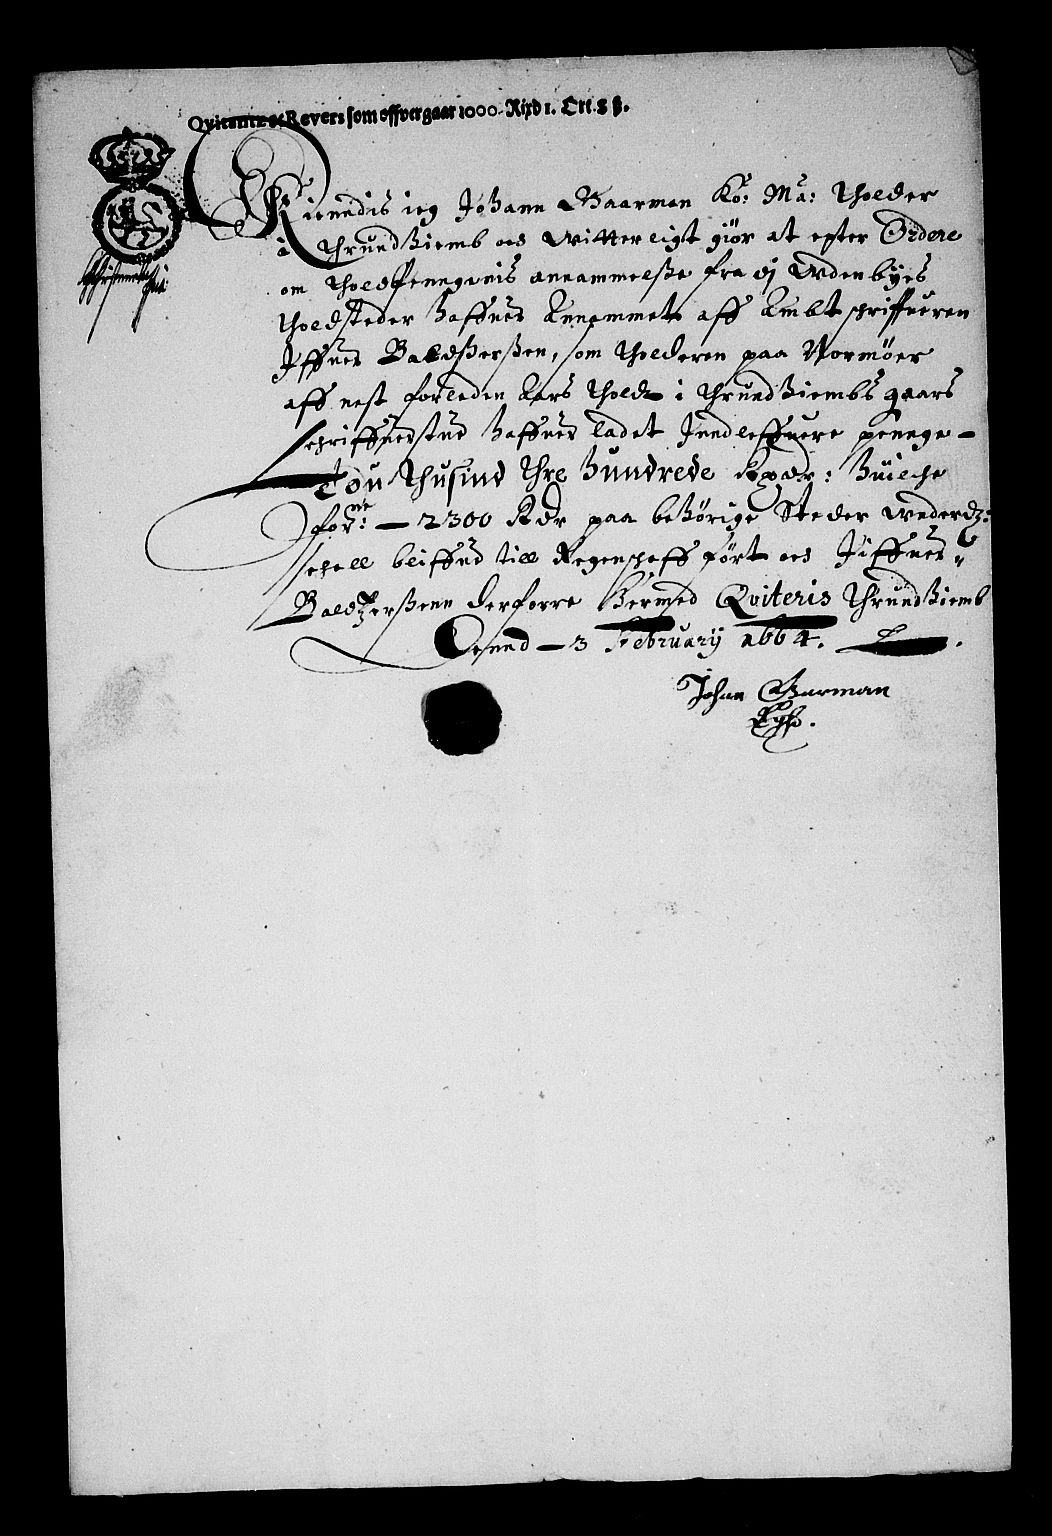 Qvitantz oc Revers som offvergaar 1000. Rixd 1. Ort. 8 ß.
Kienndis ieg Johann Gaarman Ko: Ma: Tholder
i Thrundhiemb oc Witterligt giør at epter Ordere
om Tholdpenngenis annammelße fra di Udenbyes
Tholdsteder haffuer Annammet aff Ambtschriffueren
Iffuer Baldßerßen, som Tholderen paa Normøer
aff nest forleden Aars Thold i Thrundhiembs gaars
schriffuerstue haffuer ladet Inndleffuere pennge -
Tou Thusind Thre Hundrede Rixdr: Huilche
forne: - 2300 Rdr paa behørige Steder
schall bliffue till Regenschaff ført oc Iffuer
Baldtzerßenn derforre hermed Qviteris Thrundhiemb
3 February 1664.
Johan Garman